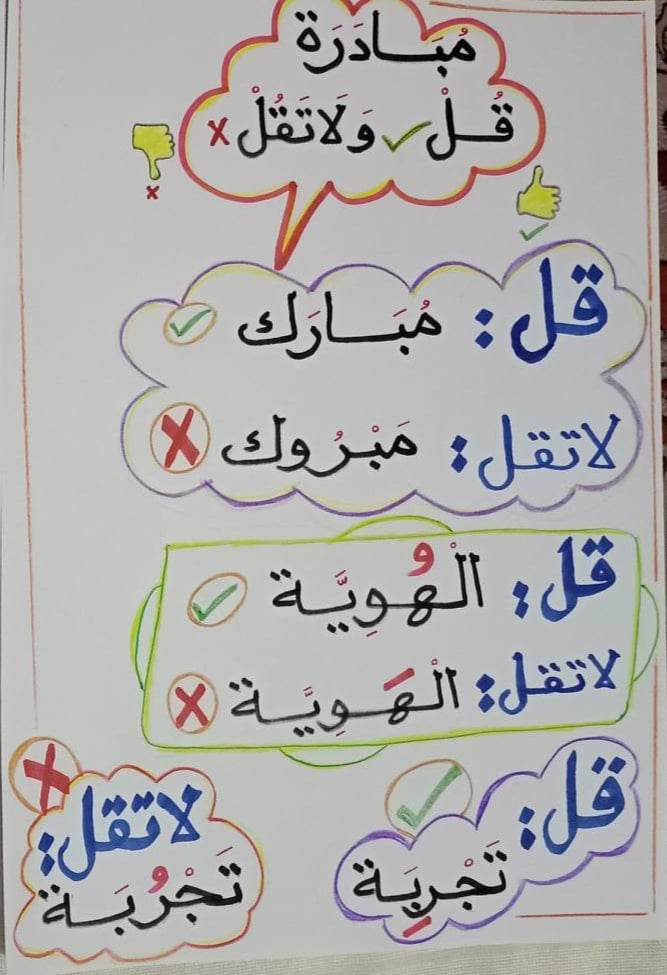 مُبَادَرَة
قُلْ ✓ وَلَاتَقُلْ x
x
✓
قل: مُبَارَك ✓
لاتقل: مَبْرُوك X
قل: الْهُوِيَّة ✓
لاتقل: الْهَوِيَّة X
قل: ✓
تَجْرِبَة
لاتقل: X
تَجْرُبَة